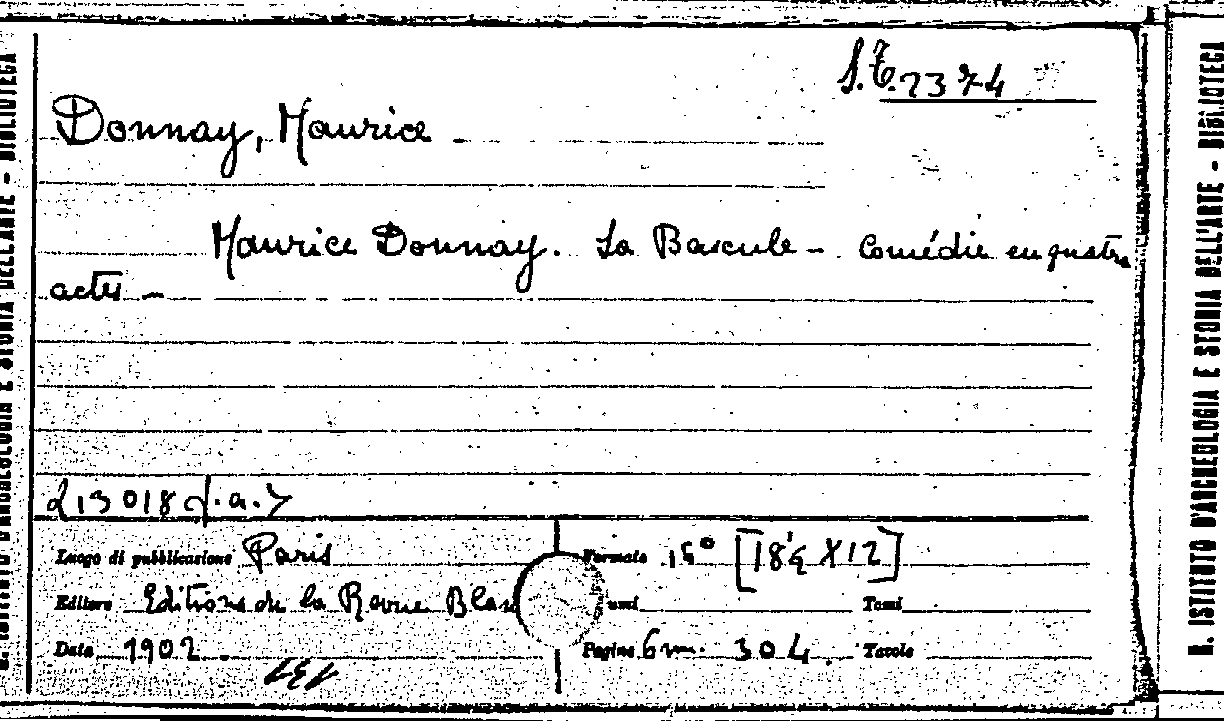 S.T. 2374
Donnay, Maurice -
Maurice Donnay. La Bascule - Comédie en quatre
actes -
213018 d.a.
Luogo di pubblicazione Paris
Formato 16° [18½ X 12]
Editore Editions de la Revue Blan
umi
Tomi
Data 1902.
Pagine 6 nn. 304.
Tavole
R. ISTITUTO D'ARCHEOLOGIA E STORIA DELL'ARTE - BIBLIOTECA
R. ISTITUTO D'ARCHEOLOGIA E STORIA DELL'ARTE - BIBLIOTECA